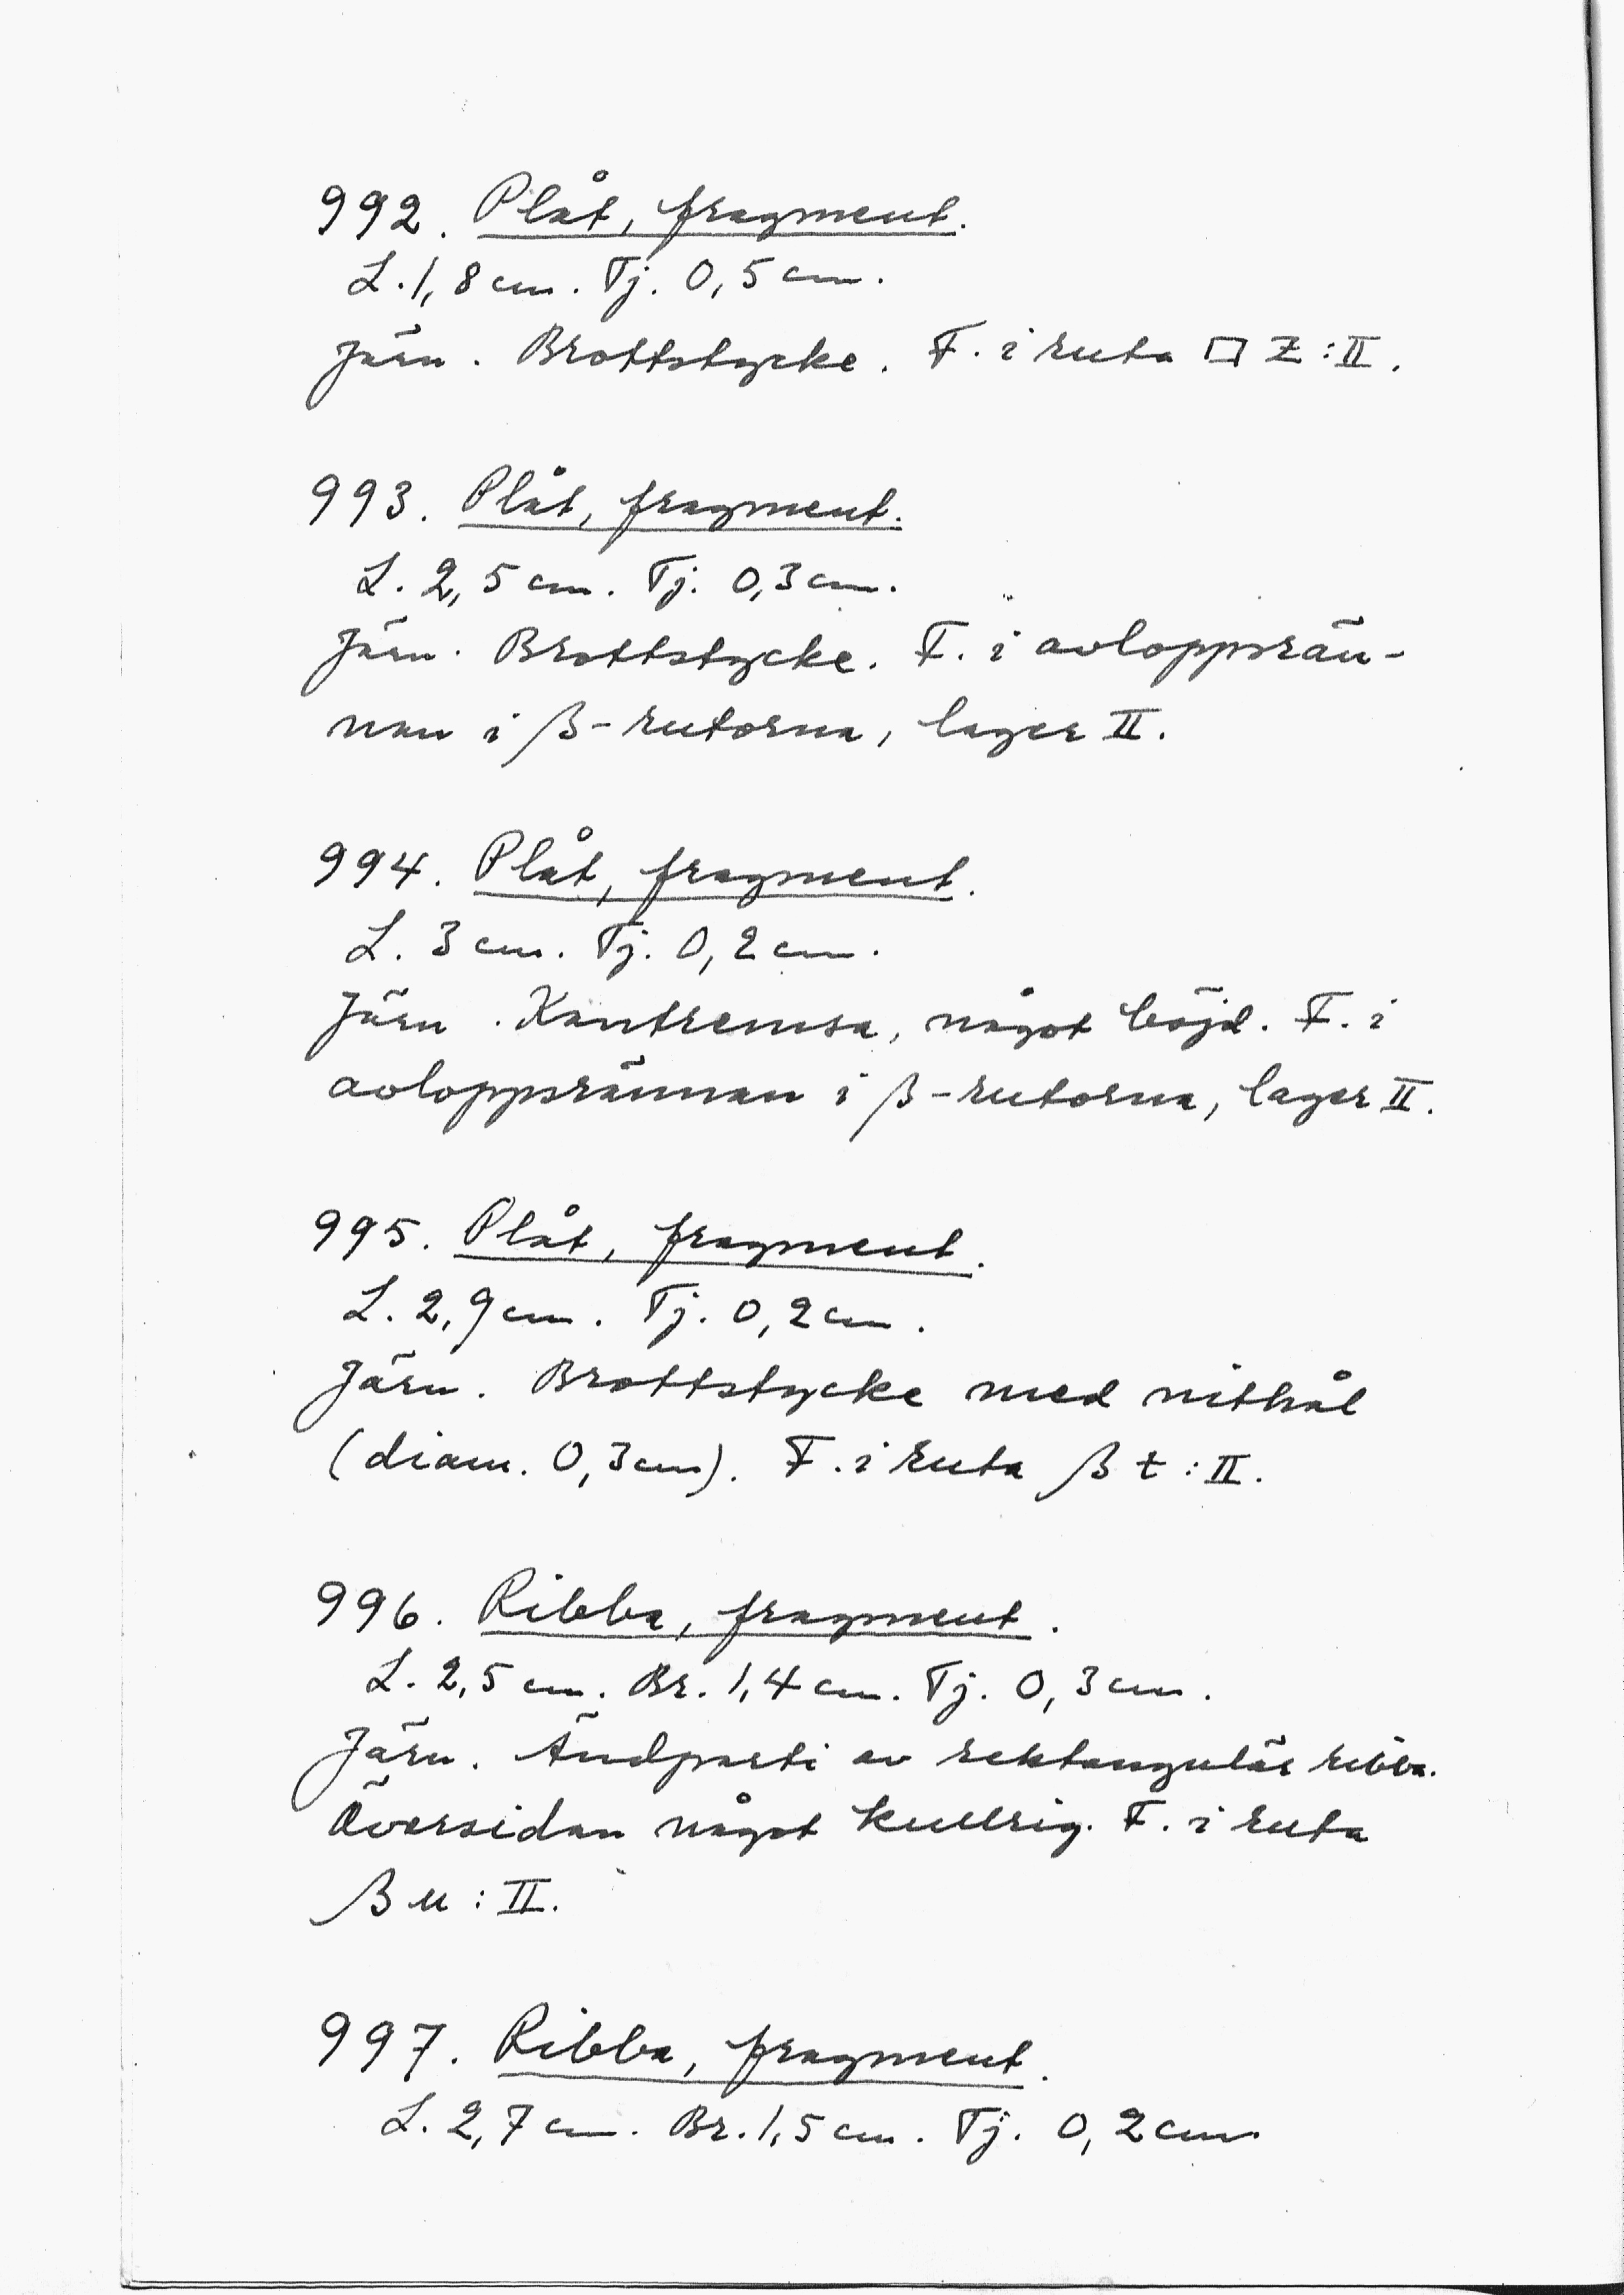 992. Plåt, fragment.
L. 1,8 cm. Tj. 0,5 cm.
Järn. Brottstycke. F. i ruta □ Z : II.
993. Plåt, fragment.
L. 2,5 cm. Tj. 0,3 cm.
Järn. Brottstycke. F. i avloppsrän-
nan i β-rutorna, lager II.
994. Plåt, fragment.
L. 3 cm. Tj. 0,2 cm.
Järn. Kantremsa, något böjd. F. i
avloppsrännan i β-rutorna, lager II.
995. Plåt, fragment.
L. 2,9 cm. Tj. 0,2 cm.
Järn. Brottstycke med nithål
(diam. 0,3 cm). F. i ruta β t : II.
996. Ribba, fragment.
L. 2,5 cm. Br. 1,4 cm. Tj. 0,3 cm.
Järn. Ändparti av rektangulär ribba.
Översidan något kullrig. F. i ruta
β u : II.
997. Ribba, fragment.
L. 2,7 cm. Br. 1,5 cm. Tj. 0,2 cm.